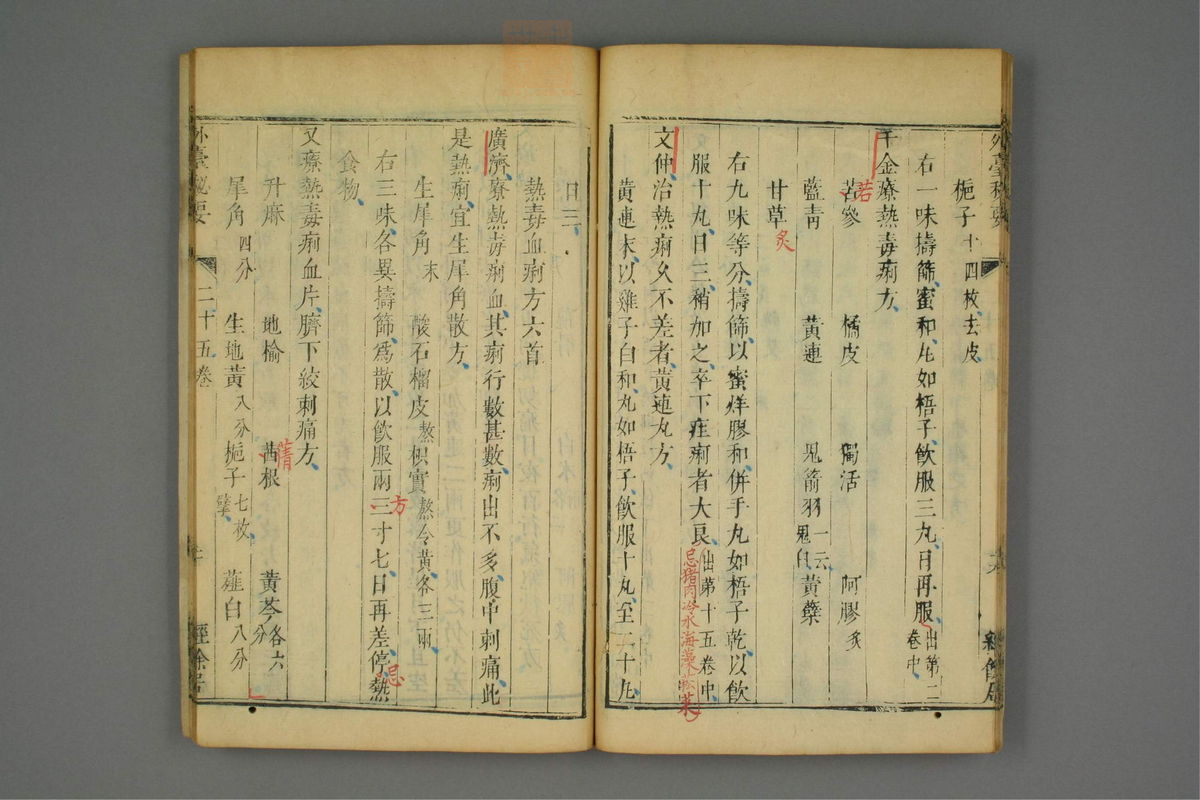 外臺秘要
梔子十四枚去皮
右一味擣篩蜜和丸如梧子飲服三丸日再服出第二卷中
千金療熱毒痢方
苦參 橘皮 獨活 阿膠炙
若
藍青 黃連 鬼箭羽一云鬼臼 黃蘗
甘草炙
右九味等分擣篩以蜜烊膠和併手丸如梧子乾以飲
服十丸日三稍加之卒下疰痢者大良出第十五卷中
忌猪肉冷水海藻菘菜
文仲治熱痢久不差者黃連丸方
黃連末以雞子白和丸如梧子飲服十丸至二十丸
日三
熱毒血痢方六首
廣濟療熱毒痢血其痢行數甚數痢出不多腹中刺痛此
是熱痢宜生犀角散方
生犀角末 酸石榴皮熬 枳實熬令黃各三兩
右三味各異擣篩為散以飲服兩三寸七日再差停熱
方
忌
食物
又療熱毒痢血片臍下絞刺痛方
升麻 地榆 茜根 黃芩各六分
犀角四分 生地黃八分 梔子七枚擘 薤白八分
外臺秘要 二十五卷 經餘居